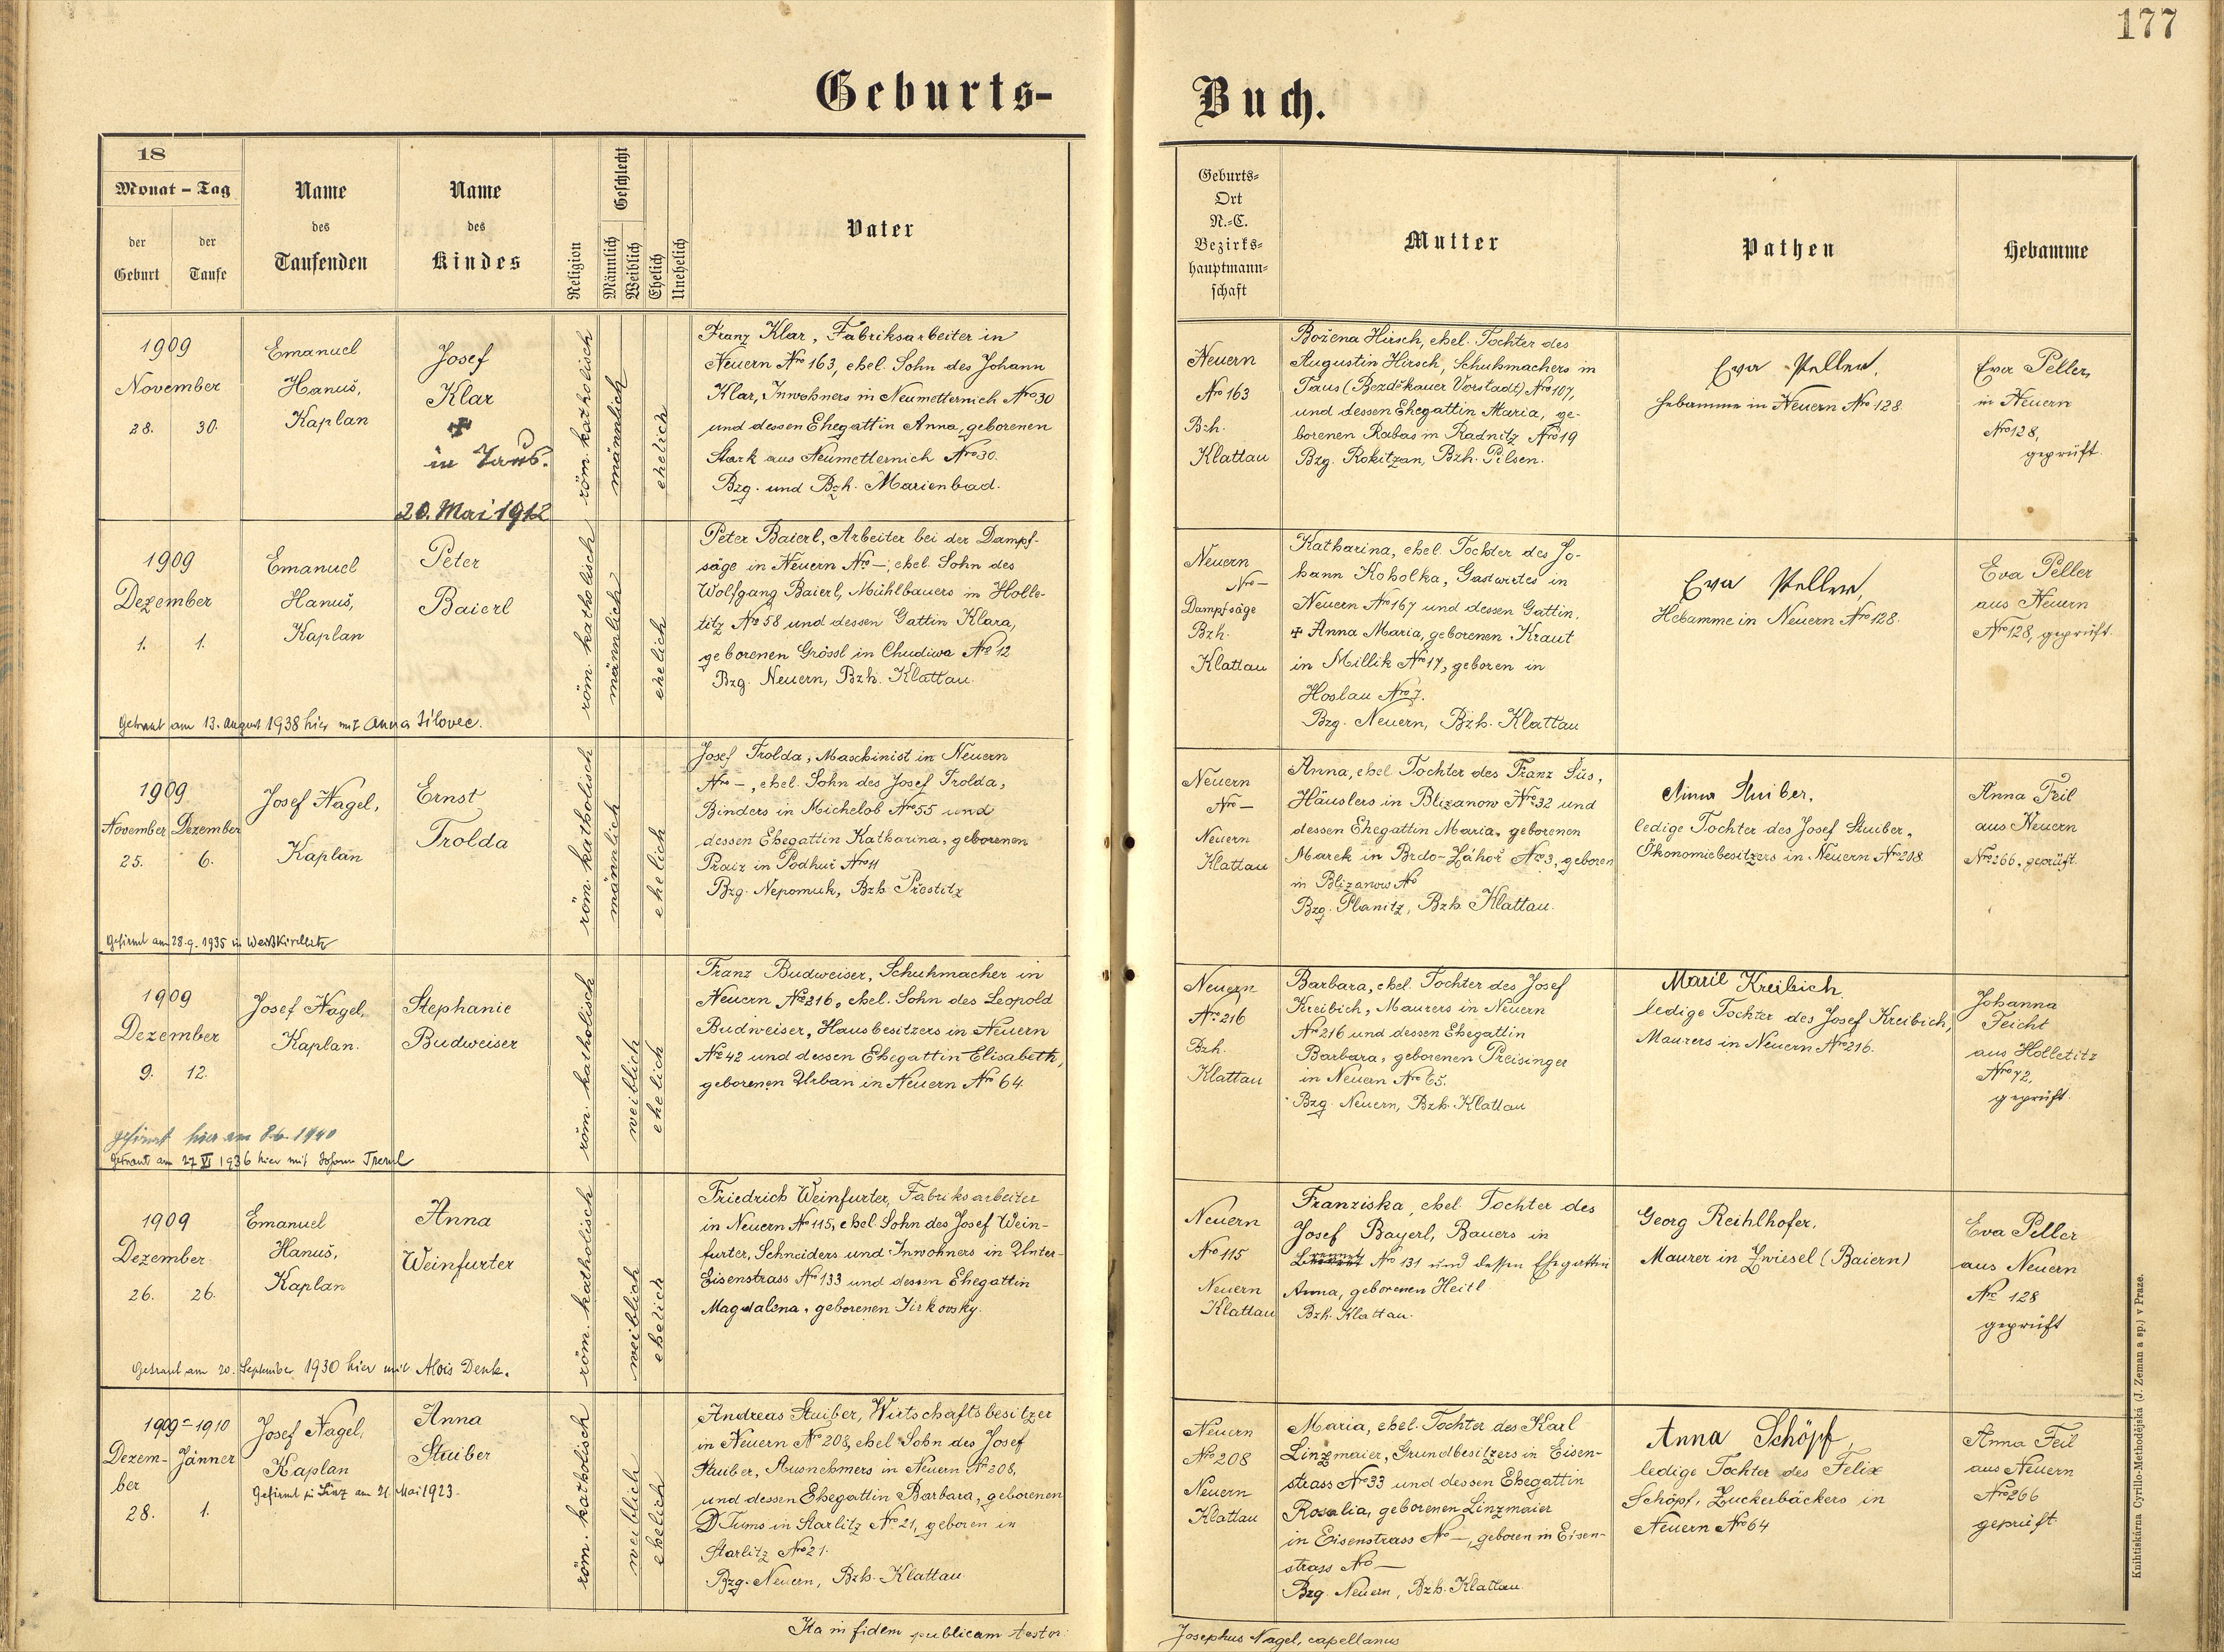 177
Geburts-
Buch.
18
Monat - Tag
der Geburt
der Taufe
Name
des
Taufenden
Name
des
Kindes
Religion
Geschlecht
Männlich
Weiblich
Ehelich
Unehelich
Vater
Geburts-
Ort
N.-C.
Bezirks-
hauptmann-
schaft
Mutter
Pathen
Hebamme
1909
November
28. 30.
Emanuel
Hanuš,
Kaplan
Josef
Klar
✠
in Taus.
20. Mai 1912
röm. katholisch
männlich
ehelich
Franz Klar, Fabriksarbeiter in
Neuern Nro 163, ehel. Sohn des Johann
Klar, Inwohners in Neumetternich Nro 30
und dessen Ehegattin Anna, geborenen
Stark aus Neumetternich Nro 30.
Bzg. und Bzh. Marienbad.
Neuern
Nro 163
Bzh.
Klattau
Božena Hirsch, ehel. Tochter des
Augustin Hirsch, Schuhmachers in
Taus (Bezděkauer Vorstadt) Nro 107,
und dessen Ehegattin Maria, ge-
borenen Rabas in Radnitz Nro 19
Bzg. Rokitzan, Bzh. Pilsen.
Eva Peller,
Hebamme in Neuern Nro 128.
Eva Peller,
in Neuern
Nro 128,
geprüft.
1909
Dezember
1. 1.
Emanuel
Hanuš,
Kaplan
Peter
Baierl
Getraut am 13. August 1938 hier mit Anna Silovec.
röm. katholisch
männlich
ehelich
Peter Baierl, Arbeiter bei der Dampf-
säge in Neuern No —, ehel. Sohn des
Wolfgang Baierl, Mühlbauers in Holle-
titz No 58 und dessen Gattin Klara,
geborenen Grössl in Chudiwa No 12
Bzg. Neuern, Bzh. Klattau.
Neuern
Nro —
Dampfsäge
Bzh.
Klattau
Katharina, ehel. Tochter des Jo-
hann Koholka, Gastwirtes in
Neuern Nro 167 und dessen Gattin,
✠ Anna Maria, geborenen Kraut
in Millik Nro 17, geboren in
Hoslau Nro 7.
Bzg. Neuern, Bzh. Klattau
Eva Peller,
Hebamme in Neuern Nro 128.
Eva Peller
aus Neuern
Nro 128, geprüft.
1909
November Dezember
25. 6.
Josef Nagel,
Kaplan
Ernst
Trolda
Gefirmt am 28.9.1935 in Weißkirchlitz
röm. katholisch
männlich
ehelich
Josef Trolda, Maschinist in Neuern
Nro —, ehel. Sohn des Josef Trolda,
Binders in Michelob Nro 55 und
dessen Ehegattin Katharina, geborenen
in Podhuř Nro 11
Bzg. Nepomuk, Bzh. Přestitz
Neuern
Nro —
Neuern
Klattau
Anna, ehel. Tochter des Franz Šús,
Häuslers in Blizanow Nro 32 und
dessen Ehegattin Maria, geborenen
Marek in Brdo-Záhoř Nro 3, geboren
in Blizanow No
Bzg. Planitz, Bzh. Klattau.
Anna Stuiber,
ledige Tochter des Josef Stuiber,
Ökonomiebesitzers in Neuern Nro 208.
Anna Feil
aus Neuern
Nro 266, geprüft.
1909
Dezember
9. 12.
Josef Nagel,
Kaplan.
Stephanie
Budweiser
gefirmt hier am 8.6.1940
Getraut am 27 VI 1936 hier mit Johann
röm. katholisch
weiblich
ehelich
Franz Budweiser, Schuhmacher in
Neuern No 216, ehel. Sohn des Leopold
Budweiser, Hausbesitzers in Neuern
No 42 und dessen Ehegattin Elisabeth,
geborenen Urban in Neuern Nro 64
Neuern
Nro 216
Bzh.
Klattau
Barbara, ehel. Tochter des Josef
Kreibich, Maurers in Neuern
No 216 und dessen Ehegattin
Barbara, geborenen Preisinger
in Neuern Nro 65.
Bzg. Neuern, Bzh. Klattau
Marie Kreibich.
ledige Tochter des Josef Kreibich,
Maurers in Neuern Nro 216.
Johanna
Feicht
aus Holletitz
Nro 72,
geprüft.
1909
Dezember
26. 26.
Emanuel
Hanuš,
Kaplan
Anna
Weinfurter
Getraut am 20. September 1930 hier mit Alois Denk.
röm. katholisch
weiblich
ehelich
Friedrich Weinfurter, Fabriksarbeiter
in Neuern No 115, ehel. Sohn des Josef Wein-
furter, Schneiders und Inwohners in Unter-
Eisenstrass No 133 und dessen Ehegattin
Magdalena, geborenen Jirkovsky.
Neuern
Nro 115
Neuern
Klattau
Franziska, ehel. Tochter des
Josef Bayerl, Bauers in
No 131 und dessen Ehegattin
Anna, geborenen Heitl
Bzh. Klattau.
Georg Reihlhofer,
Maurer in Zwiesel (Baiern)
Eva Peller
aus Neuern
No 128
geprüft
1909-1910
Dezem- Jänner
ber
28. 1.
Josef Nagel,
Kaplan
Gefirmt in Linz am 21. Mai 1923.
Anna
Stuiber
röm. katholisch
weiblich
ehelich
Andreas Stuiber, Wirtschaftsbesitzer
in Neuern No 208, ehel. Sohn des Josef
Stuiber, Ausnehmers in Neuern No 208,
und dessen Ehegattin Barbara, geborenen
Tums in Starlitz No 21, geboren in
Starlitz Nro 21.
Bzg. Neuern, Bzh. Klattau
Neuern
Nro 208
Neuern
Klattau
Maria, ehel. Tochter des Karl
Linzmaier, Grundbesitzers in Eisen-
strass No 33 und dessen Ehegattin
Rosalia, geborenen Linzmaier
in Eisenstrass No —, geboren in Eisen-
strass No —
Bzg. Neuern, Bzh. Klattau
Anna Schöpf,
ledige Tochter des Felix
Schöpf, Zuckerbäckers in
Neuern Nro 64
Anna Feil
aus Neuern
Nro 266
geprüft
Ita in fidem publicam testor:
Josephus Nagel, capellanus
Knihtiskárna Cyrillo-Methodějská (J. Zeman a sp.) v Praze.